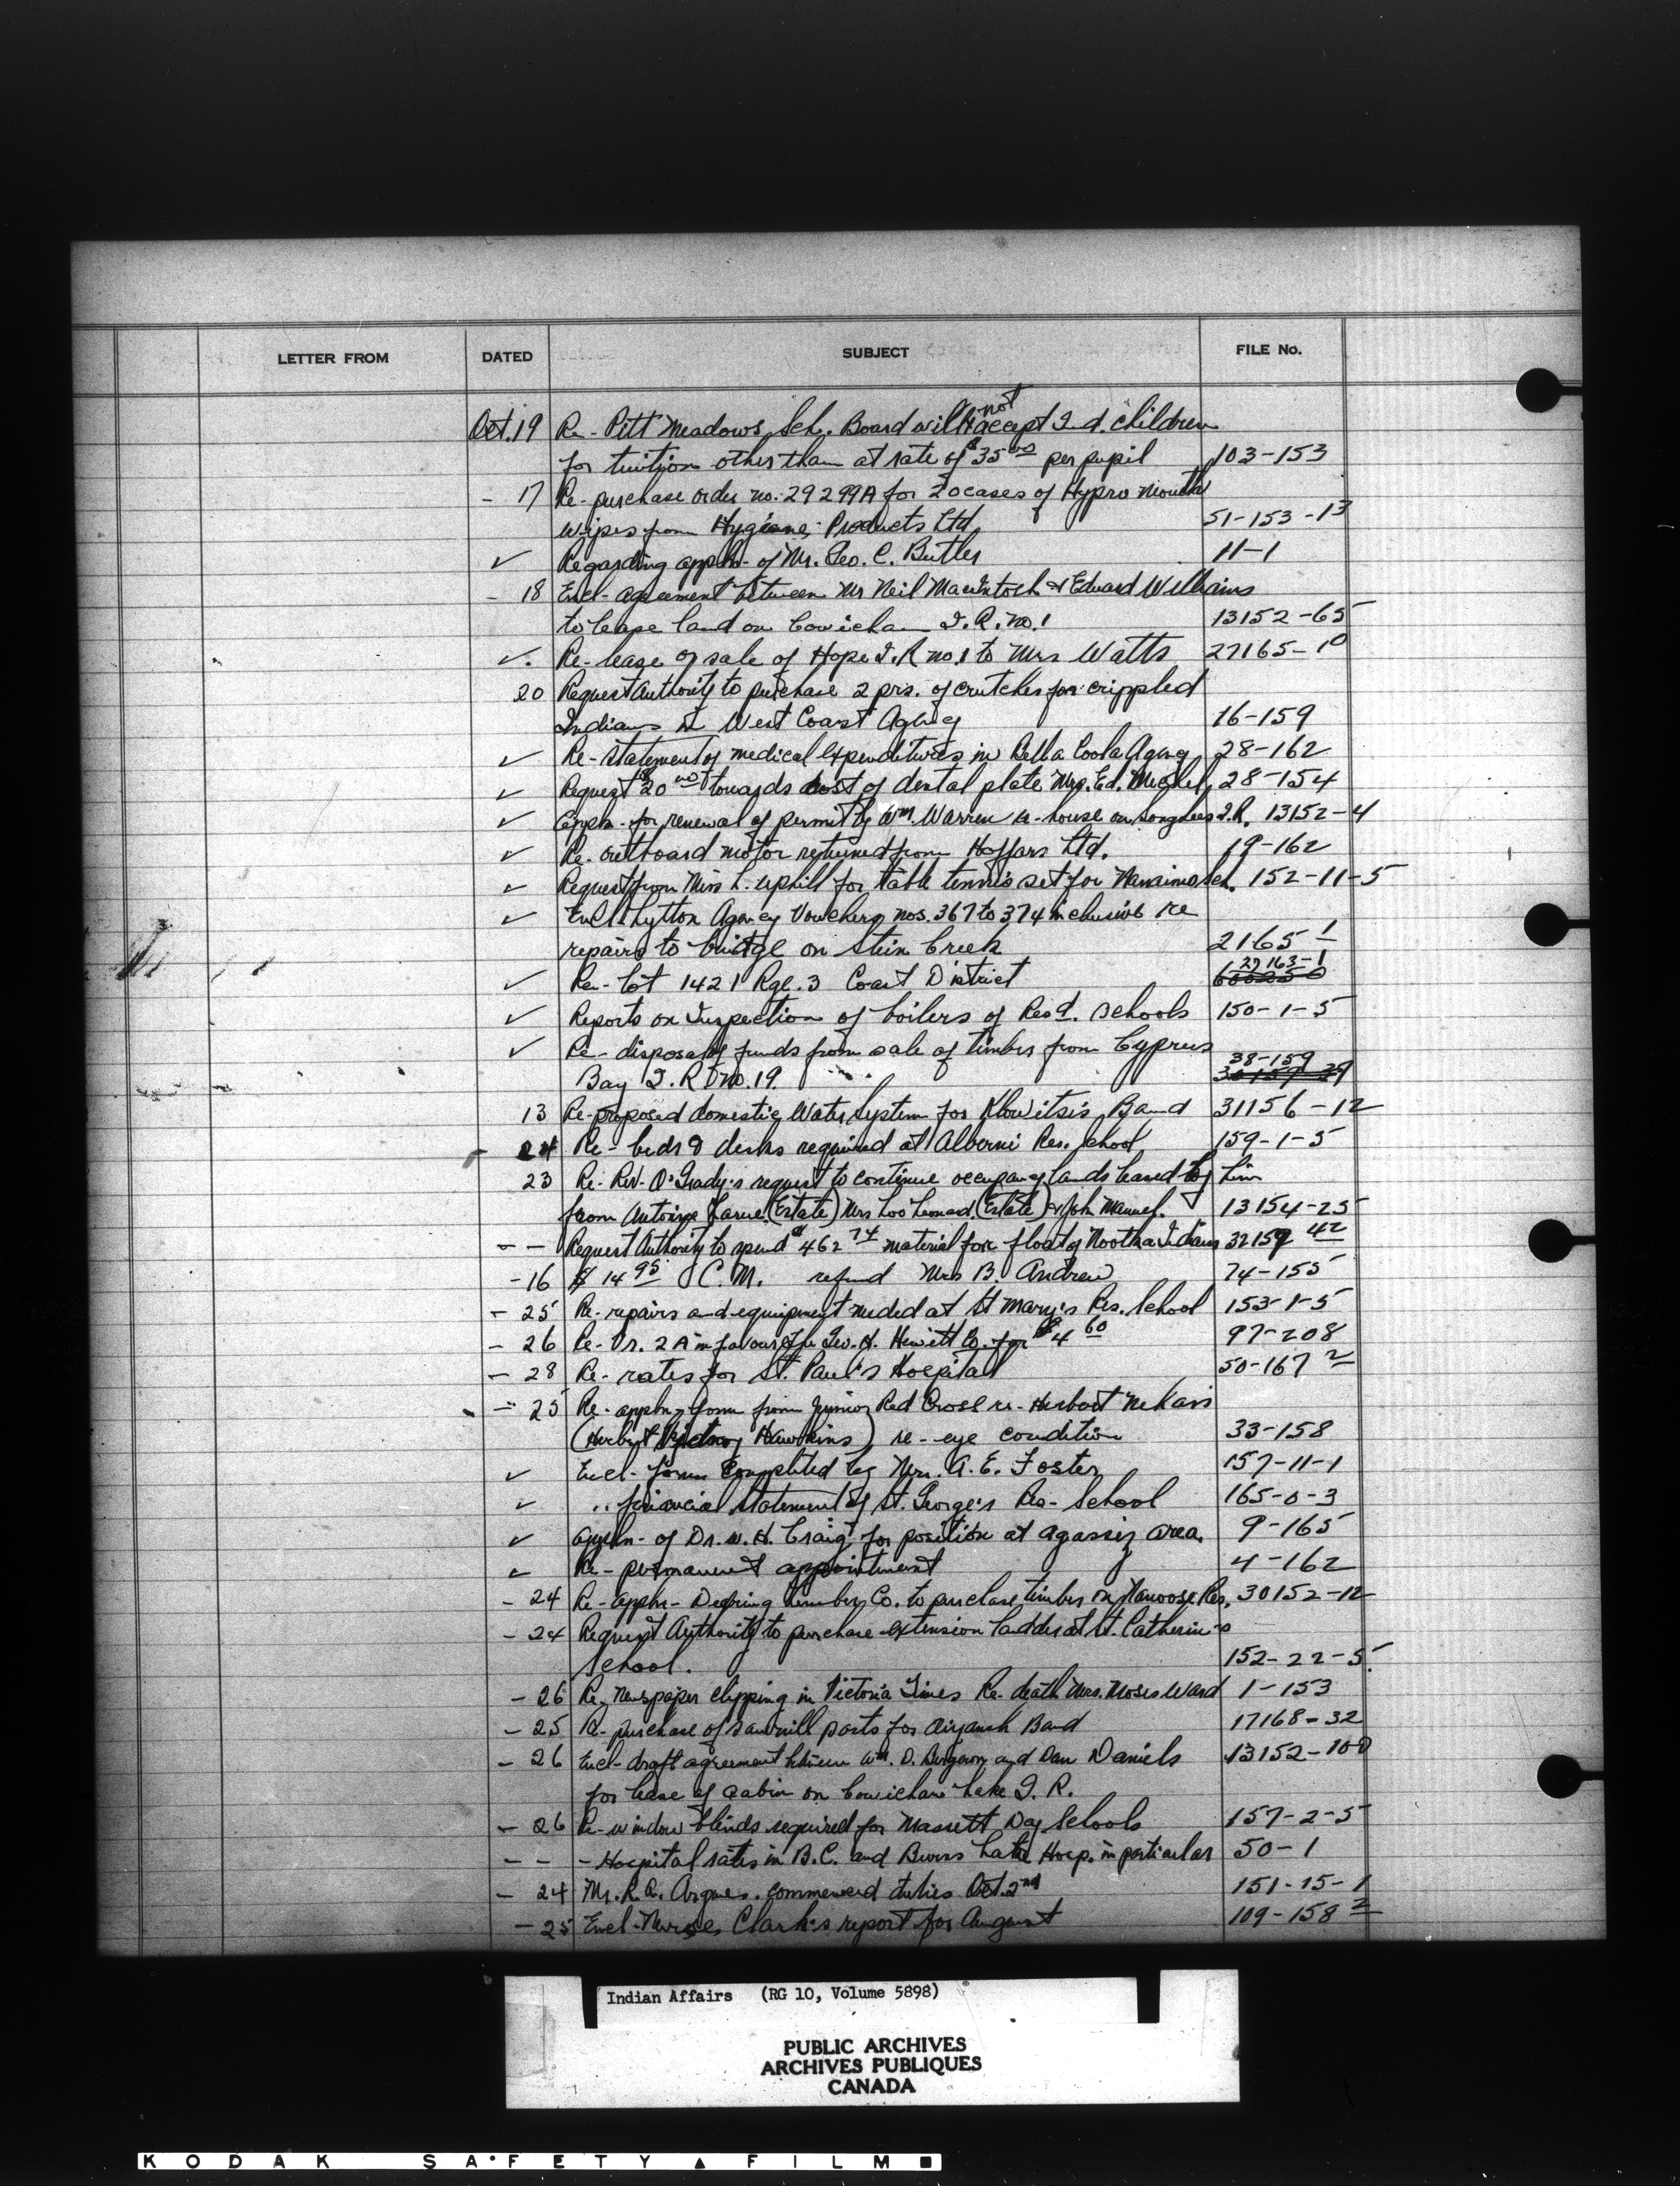 LETTER FROM DATED SUBJECT FILE No.
Oct. 19 Re- Pitt Meadows Sch. Board will not accept Ind. children
for tuition other than at rate of $35.00 per pupil 103-153
- 17 Re- purchase order no. 29299A for 20 cases of Hypro mouth
wipes from Hygiene Products Ltd, 51-153-13
✓ Regarding appln- of Mr. Geo. C. Butler 11-1
- 18 Encl- agreement between Mr Neil MacIntosh & Edward Williams
to lease land on Cowichan I.R. no. 1 13152-65
✓. Re- lease or sale of Hope I.R no. 1 to Mrs Watts 27165-10
20 Request authority to purchase 2 prs. of crutches for crippled
Indians in West Coast Agency 16-159
✓ Re- statement of medical expenditures in Bella Coola Agency 28-162
✓ Request $20.00 towards cost of dental plate Mrs. Ed. 28-154
✓ Appln- for renewal of permit by Wm. Warren re- house on Songhees I.R. 13152-4
✓ Re- outboard motor returned from Hoffars Ltd. 19-162
✓ Request from Miss L. Uphill for table tennis set for Nanaimo sch. 152-11-5
✓ Encl. Lytton Agency Vouchers nos. 367 to 374 inclusive re
repairs to bridge on Stein Creek 2165-1
✓ Re- Lot 1421 Rge. 3 Coast District 29163-1
✓ Reports on Inspection of boilers of Resd. schools 150-1-5
✓ Re- disposal of funds from sale of timber from Cyprus
Bay I.R. no. 19. 38-159
13 Re- proposed domestic Water System for Klowitsis Band 31156-12
- 24 Re- beds & desks required at Alberni Res. School 159-1-5
23 Re- Rev. O'Grady's request to continue occupancy lands leased by him
from Antoine Larue (Estate) Mrs Loo Leonard (Estate) & John Manuel. 13154-25
- - Request Authority to spend $462.74 material for float of Nootka Indians 32159-42
- 16 $14.95 C.M. refund Mrs B. Andrew 74-155
- 25 Re- repairs and equipment needed at St Mary's Res. School 153-1-5
- 26 Re- Vr. 2A in favour of Geo. H. Hewitt Co. for $4.60 97-208
- 28 Re- rates for St. Paul's Hospital 50-167-2
- 25 Re- appln- form from Junior Red Cross re- Herbert
(Herbert Hawkins) re- eye condition 33-158
✓ Encl- forms Completed by Mrs. A. E. Foster 157-11-1
✓ " financial statement of St. George's Res- School 165-0-3
✓ appln- of Dr. W. H. Craig for position at Agassiz area. 9-165
✓ Re- permanent appointment 4-162
- 24 Re- appln- Deering Lumber Co. to purchase timber on Nanoose Res. 30152-12
- 24 Request Authority to purchase extension ladder at St. Catherine's
School. 152-22-5
- 26 Re- Newspaper clipping in Victoria Times Re- death Mrs. Moses Ward 1-153
- 25 Re- purchase of sawmill parts for Aiyansh Band 17168-32
- 26 Encl- draft agreement between Wm. D. Bergeron and Dan Daniels 13152-100
for lease of cabin on Cowichan Lake I.R.
- 26 Re- window blinds required for Massett Day Schools 157-2-5
- - - Hospital rates in B.C. and Burns Lake Hosp. in particular 50-1
- 24 Mr. R. A. Argues. commenced duties Oct. 2nd 151-15-1
- 25 Encl- Nurse Clark's report for August 109-158-2
Indian Affairs (RG 10, Volume 5898)
PUBLIC ARCHIVES
ARCHIVES PUBLIQUES
CANADA
KODAK SAFETY FILM